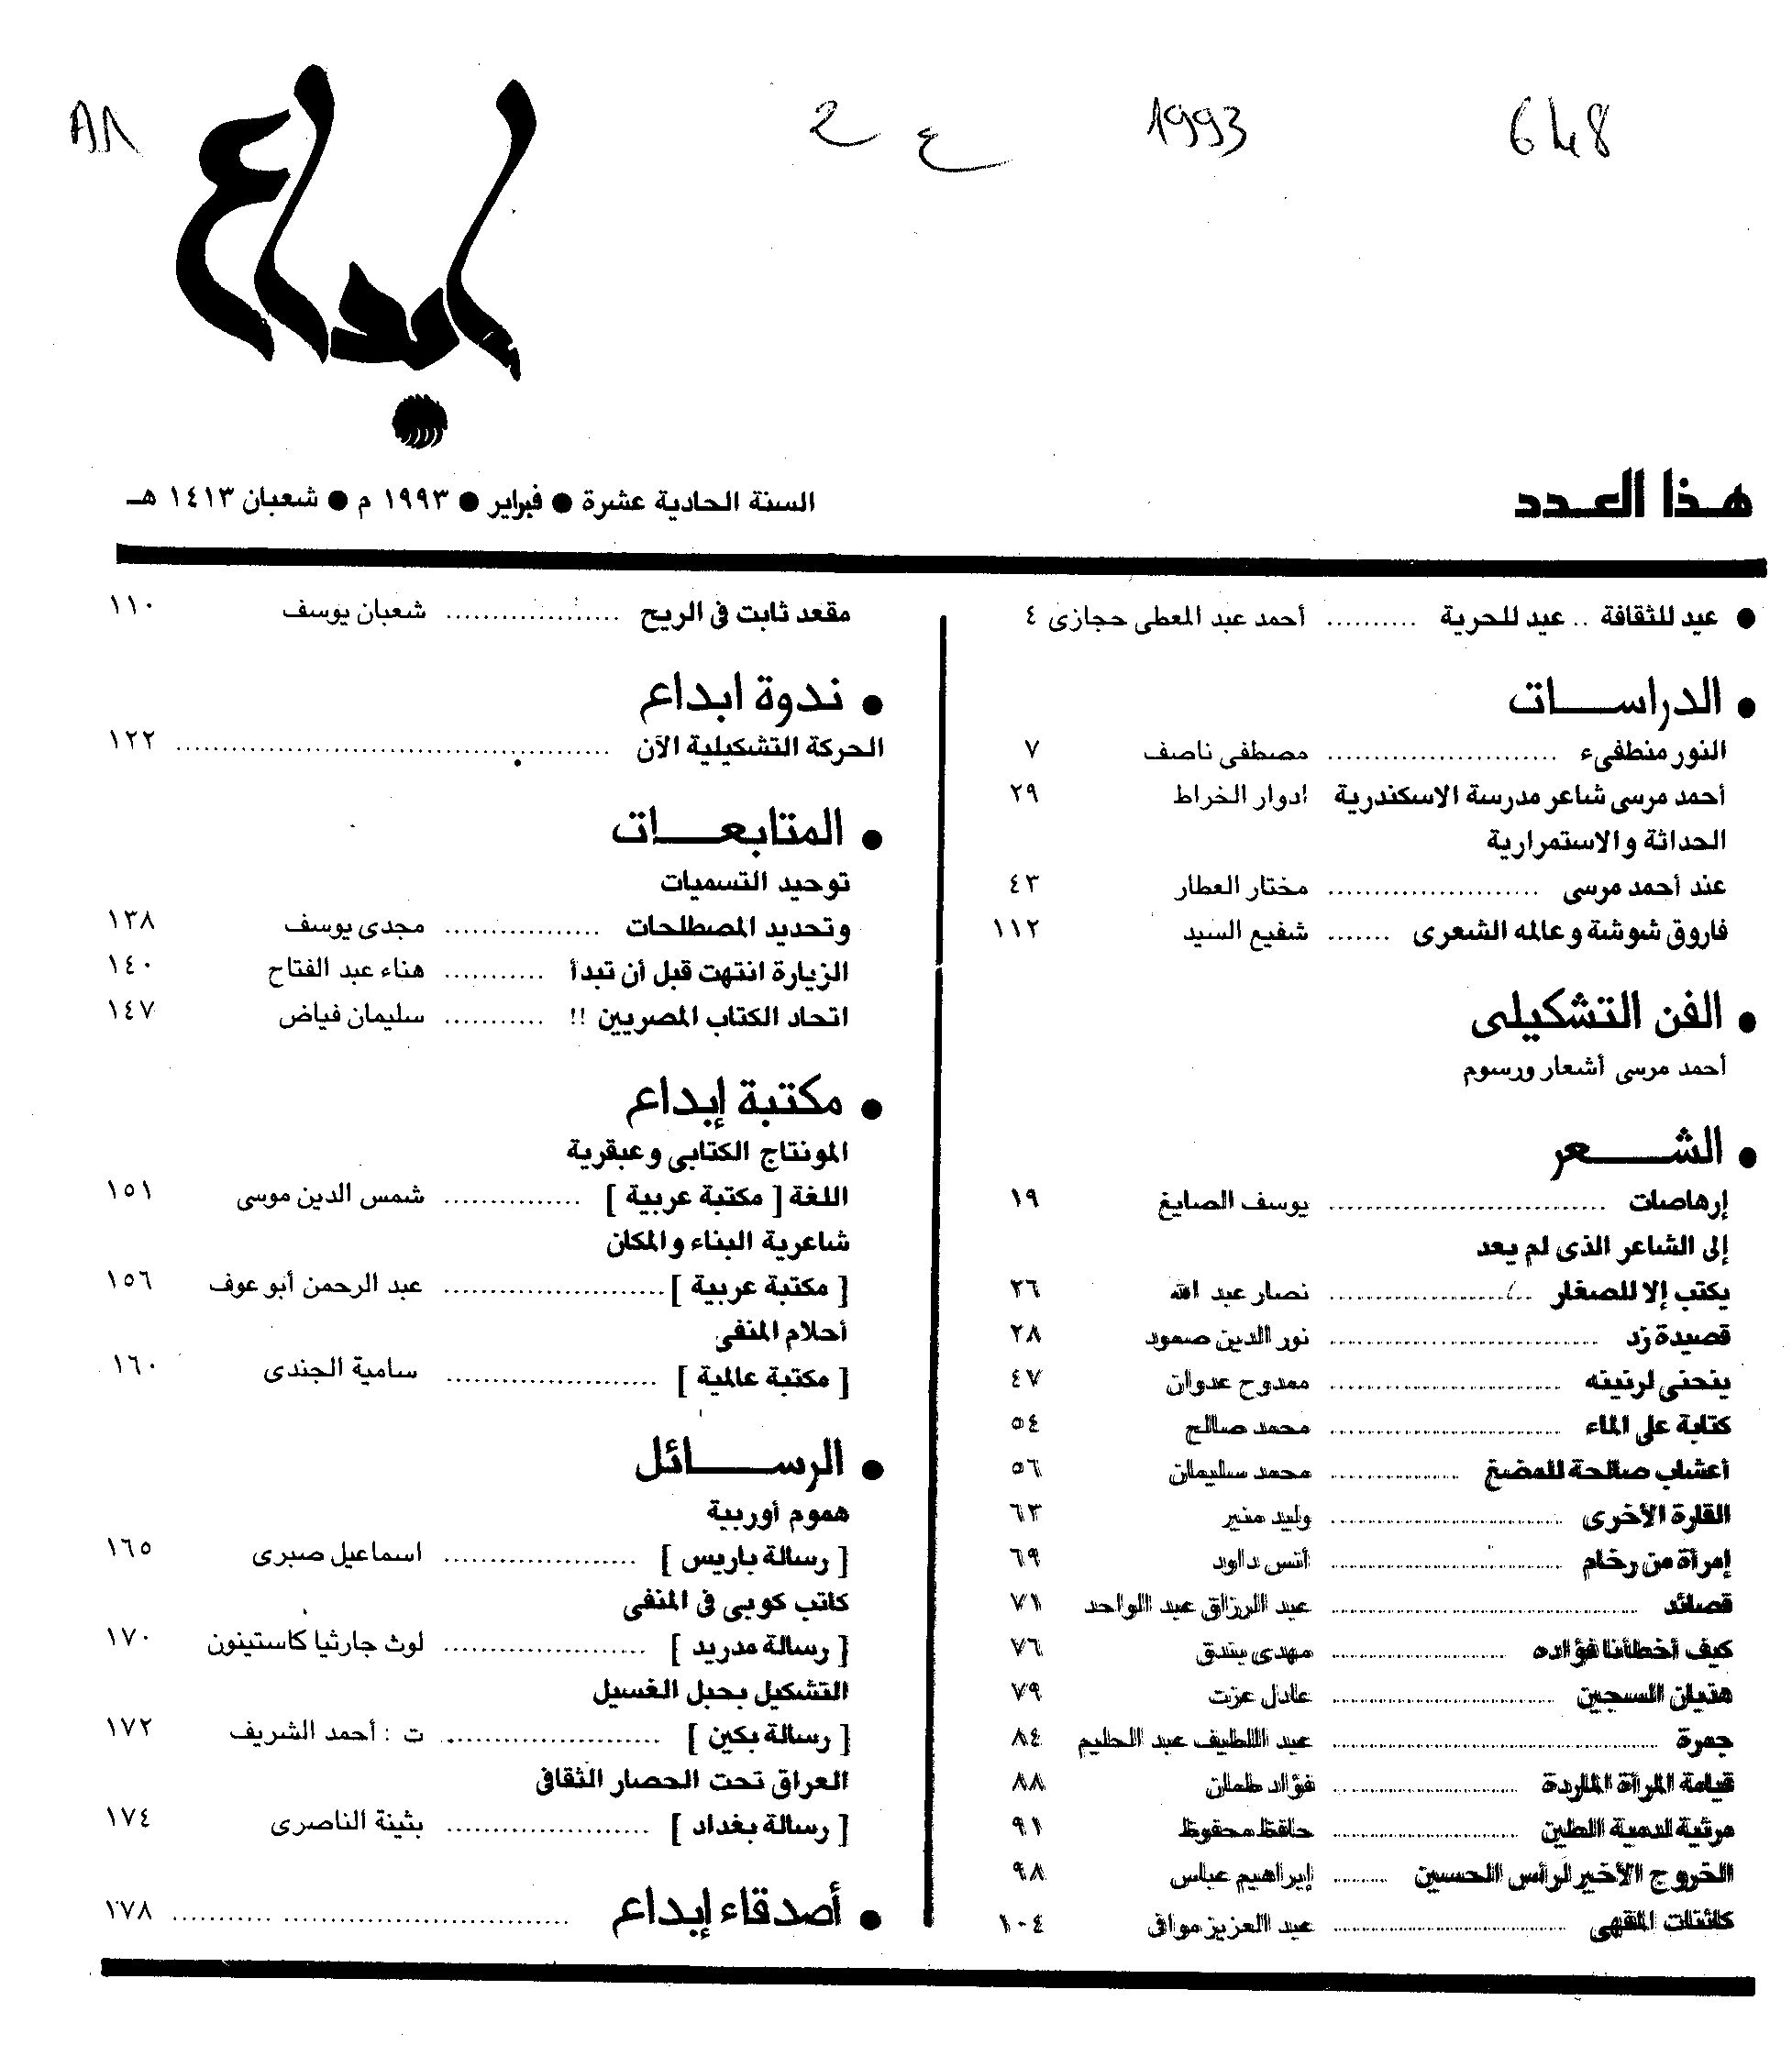 648
1993
ع 2
إبداع
هذا العدد
السنة الحادية عشرة ● فبراير ● ١٩٩٣ م ● شعبان ١٤١٣ هـ
● عيد للثقافة .. عيد للحرية .......... أحمد عبد المعطى حجازى ٤
● الدراسات
النور منطفىء .......... مصطفى ناصف ٧
أحمد مرسى شاعر مدرسة الاسكندرية ادوار الخراط ٢٩
الحداثة والاستمرارية
عند أحمد مرسى .......... مختار العطار ٤٣
فاروق شوشة وعالمه الشعرى ....... شفيع السيد ١١٢
● الفن التشكيلى
أحمد مرسى أشعار ورسوم
● الشعر
إرهاصات .......... يوسف الصايغ ١٩
إلى الشاعر الذى لم يعد
يكتب إلا للصغار .......... نصار عبد الله ٢٦
قصيدة زد .......... نور الدين صمود ٢٨
ينحنى لرنيته .......... ممدوح عدوان ٤٧
كتابة على الماء .......... محمد صالح ٥٤
أعشاب صالحة للمضغ .......... محمد سليمان ٥٦
القارة الأخرى .......... وليد منير ٦٣
إمرأة من رخام .......... أنس داود ٦٩
قصائد .......... عبد الرزاق عبد الواحد ٧١
كيف أخطأنا فؤاده .......... مهدى بندق ٧٦
هتيان السجين .......... عادل عزت ٧٩
جمرة .......... عبد اللطيف عبد الحليم ٨٤
قيامة المرأة الماردة .......... فؤاد طمان ٨٨
مرثية لدمية الطين .......... حافظ محفوظ ٩١
الخروج الأخير لرأس الحسين ....... إبراهيم عباس ٩٨
كائنات المقهى .......... عبد العزيز موافى ١٠٤
مقعد ثابت فى الريح .......... شعبان يوسف ١١٠
● ندوة ابداع
الحركة التشكيلية الآن .......... ١٢٢
● المتابعات
توحيد التسميات
وتحديد المصطلحات .......... مجدى يوسف ١٣٨
الزيارة انتهت قبل أن تبدأ .......... هناء عبد الفتاح ١٤٠
اتحاد الكتاب المصريين !! .......... سليمان فياض ١٤٧
● مكتبة إبداع
المونتاج الكتابى وعبقرية
اللغة [ مكتبة عربية ] .......... شمس الدين موسى ١٥١
شاعرية البناء والمكان
[ مكتبة عربية ] .......... عبد الرحمن أبو عوف ١٥٦
أحلام المنفى
[ مكتبة عالمية ] .......... سامية الجندى ١٦٠
● الرسائل
هموم أوربية
[ رسالة باريس ] .......... اسماعيل صبرى ١٦٥
كاتب كوبى فى المنفى
[ رسالة مدريد ] .......... لوث جارثيا كاستينون ١٧٠
التشكيل بحبل الغسيل
[ رسالة بكين ] .......... ت : أحمد الشريف ١٧٢
العراق تحت الحصار الثقافى
[ رسالة بغداد ] .......... بثينة الناصرى ١٧٤
● أصدقاء إبداع .......... ١٧٨